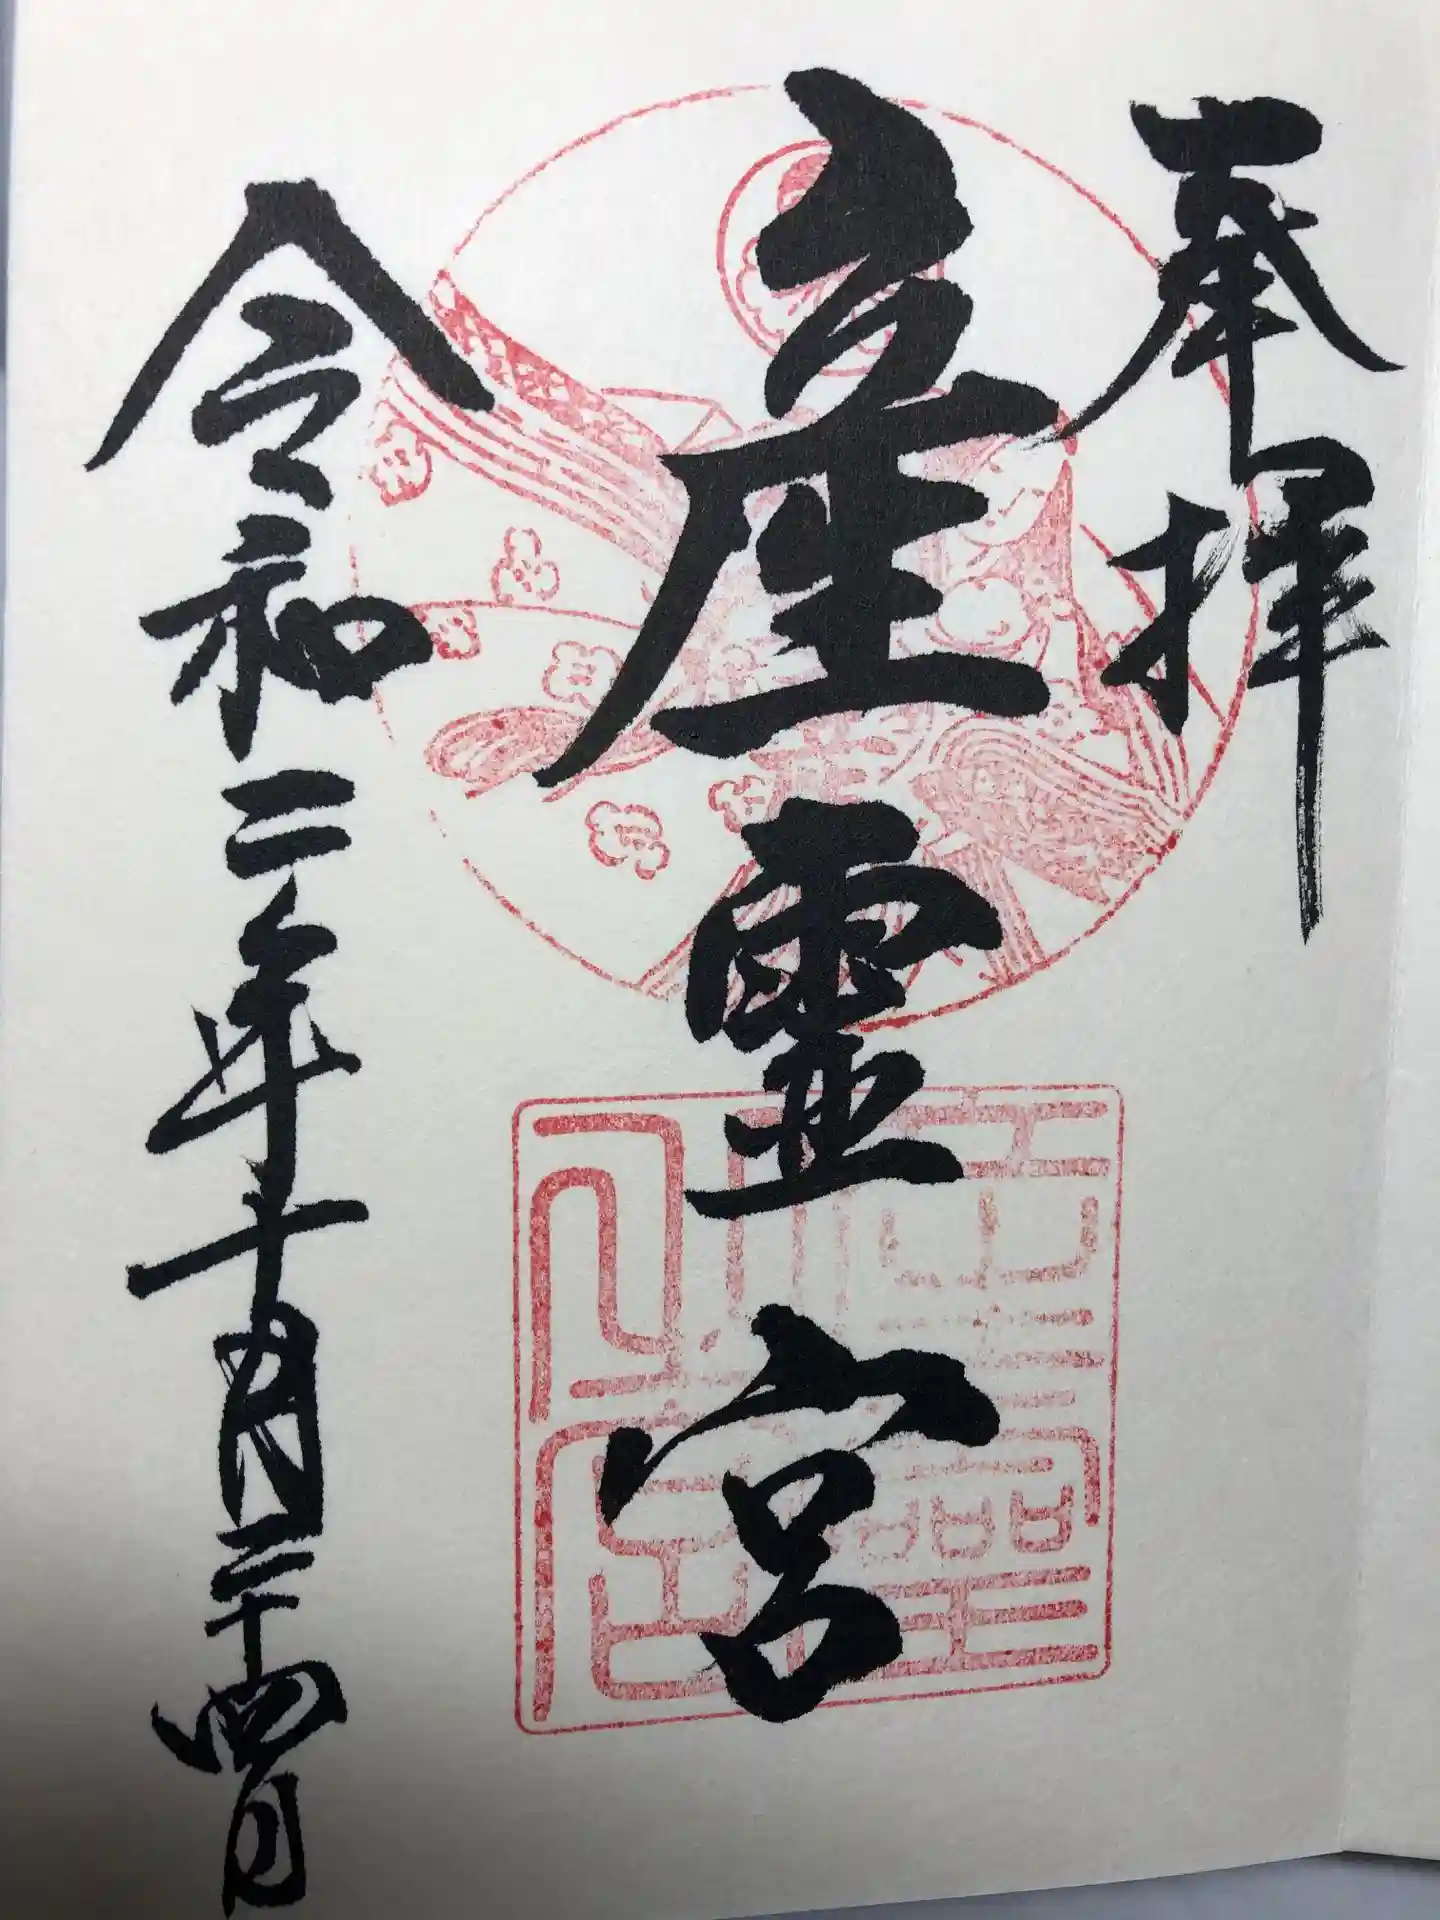 奉拝
産霊宮
令和二年十月二十四日